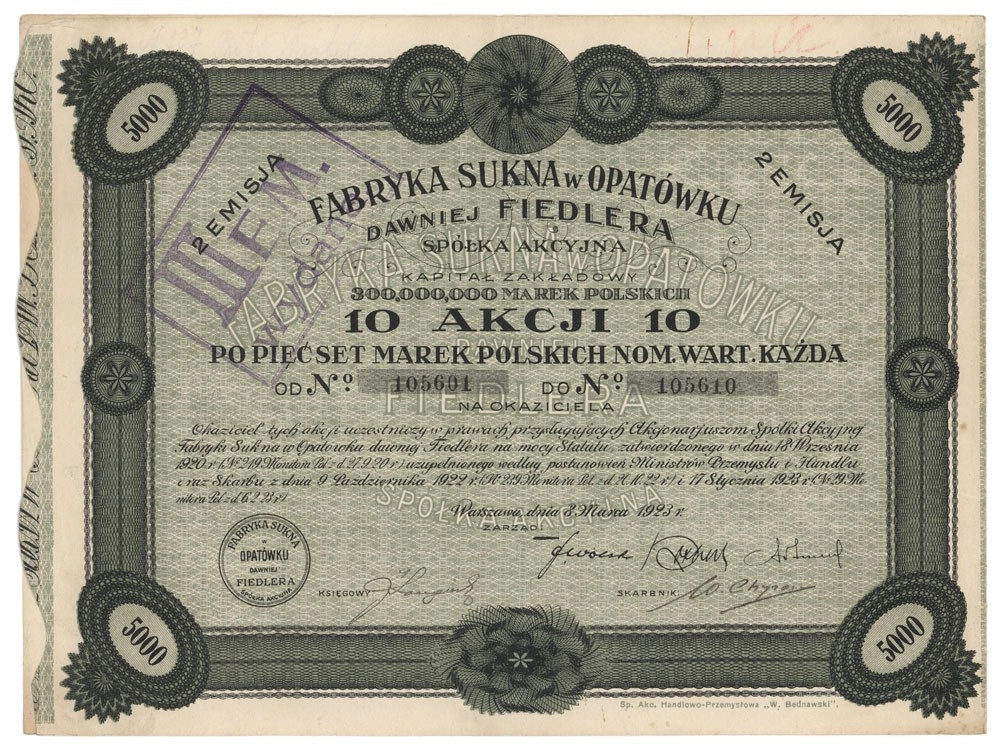 5000
5000
2 EMISJA
2 EMISJA
III E M.
Wydano
FABRYKA SUKNA w OPATÓWKU
DAWNIEJ FIEDLERA
SPÓŁKA AKCYJNA
KAPITAŁ ZAKŁADOWY
300,000,000 MAREK POLSKICH
10 AKCJI 10
PO PIĘĆSET MAREK POLSKICH NOM. WART. KAŻDA
OD No. 105601 DO No. 105610
NA OKAZICIELA
Okaziciel tych akcji uczestniczy w prawach przysługujących Akcjonarjuszom Spółki Akcyjnej
Fabryki Sukna w Opatówku dawniej Fiedlera na mocy Statutu, zatwierdzonego w dniu 18 Września
1920 r (No 219 Monitora Pol - d. 27.9.20 r) uzupełnionego według postanowień Ministrów Przemysłu i Handlu
oraz Skarbu z dnia 9 Października 1922 r. (No 259 Monitora Pol - z d. 14.11.22 r) i 17 Stycznia 1923 r. (No 29 Mo-
nitora Pol z d. 6 2 23 r)
Warszawa, dnia 8 Marca 1923 r.
ZARZĄD:
FABRYKA SUKNA
w
OPATÓWKU
DAWNIEJ
FIEDLERA
SPÓŁKA AKCYJNA
KSIĘGOWY
SKARBNIK
FABRYKA SUKNA w OPATÓWKU
DAWNIEJ
FIEDLERA
SPÓŁKA AKCYJNA
5000
5000
Sp. Akc. Handlowo-Przemysłowa „W. Bednawski".